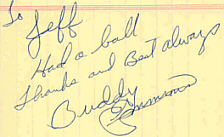 To Jeff
Had a ball
Thanks and Best always
Buddy